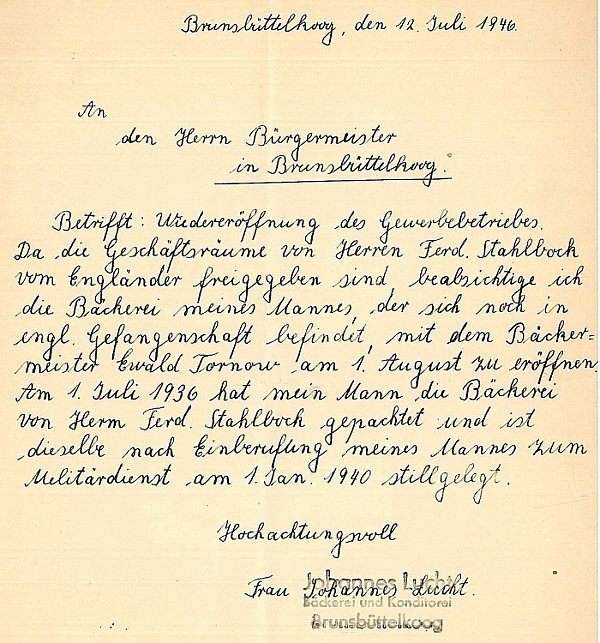 Brunsbüttelkoog, den 12. Juli 1946.
An
den Herrn Bürgermeister
in Brunsbüttelkoog.
Betrifft: Wiedereröffnung des Gewerbebetriebes.
Da die Geschäftsräume von Herren Ferd. Stahlbock
vom Engländer freigegeben sind, beabsichtige ich
die Bäckerei meines Mannes, der sich noch in
engl. Gefangenschaft befindet, mit dem Bäcker=
meister Ewald Tornow am 1. August zu eröffnen.
Am 1. Juli 1936 hat mein Mann die Bäckerei
von Herrn Ferd. Stahlbock gepachtet und ist
dieselbe nach Einberufung meines Mannes zum
Militärdienst am 1. Jan. 1940 stillgelegt.
Hochachtungsvoll
Frau Johannes Lucht.
Johannes Lucht
Bäckerei und Konditorei
Brunsbüttelkoog